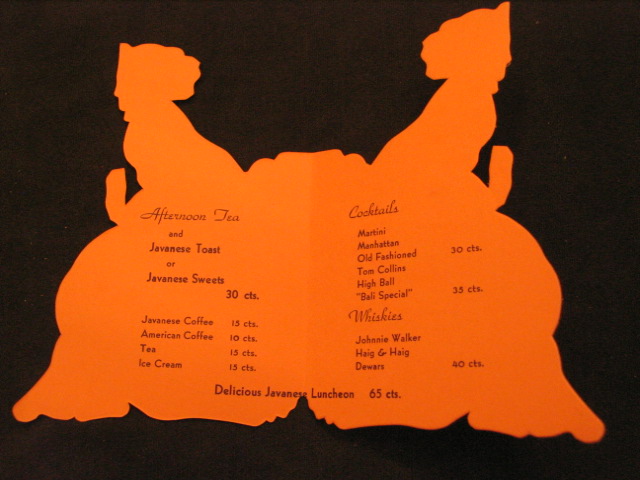 Afternoon Tea
and
Javanese Toast
or
Javanese Sweets
30 cts.
Javanese Coffee 15 cts.
American Coffee 10 cts.
Tea 15 cts.
Ice Cream 15 cts.
Cocktails
Martini
Manhattan
Old Fashioned 30 cts.
Tom Collins
High Ball
"Bali Special" 35 cts.
Whiskies
Johnnie Walker
Haig & Haig
Dewars 40 cts.
Delicious Javanese Luncheon 65 cts.